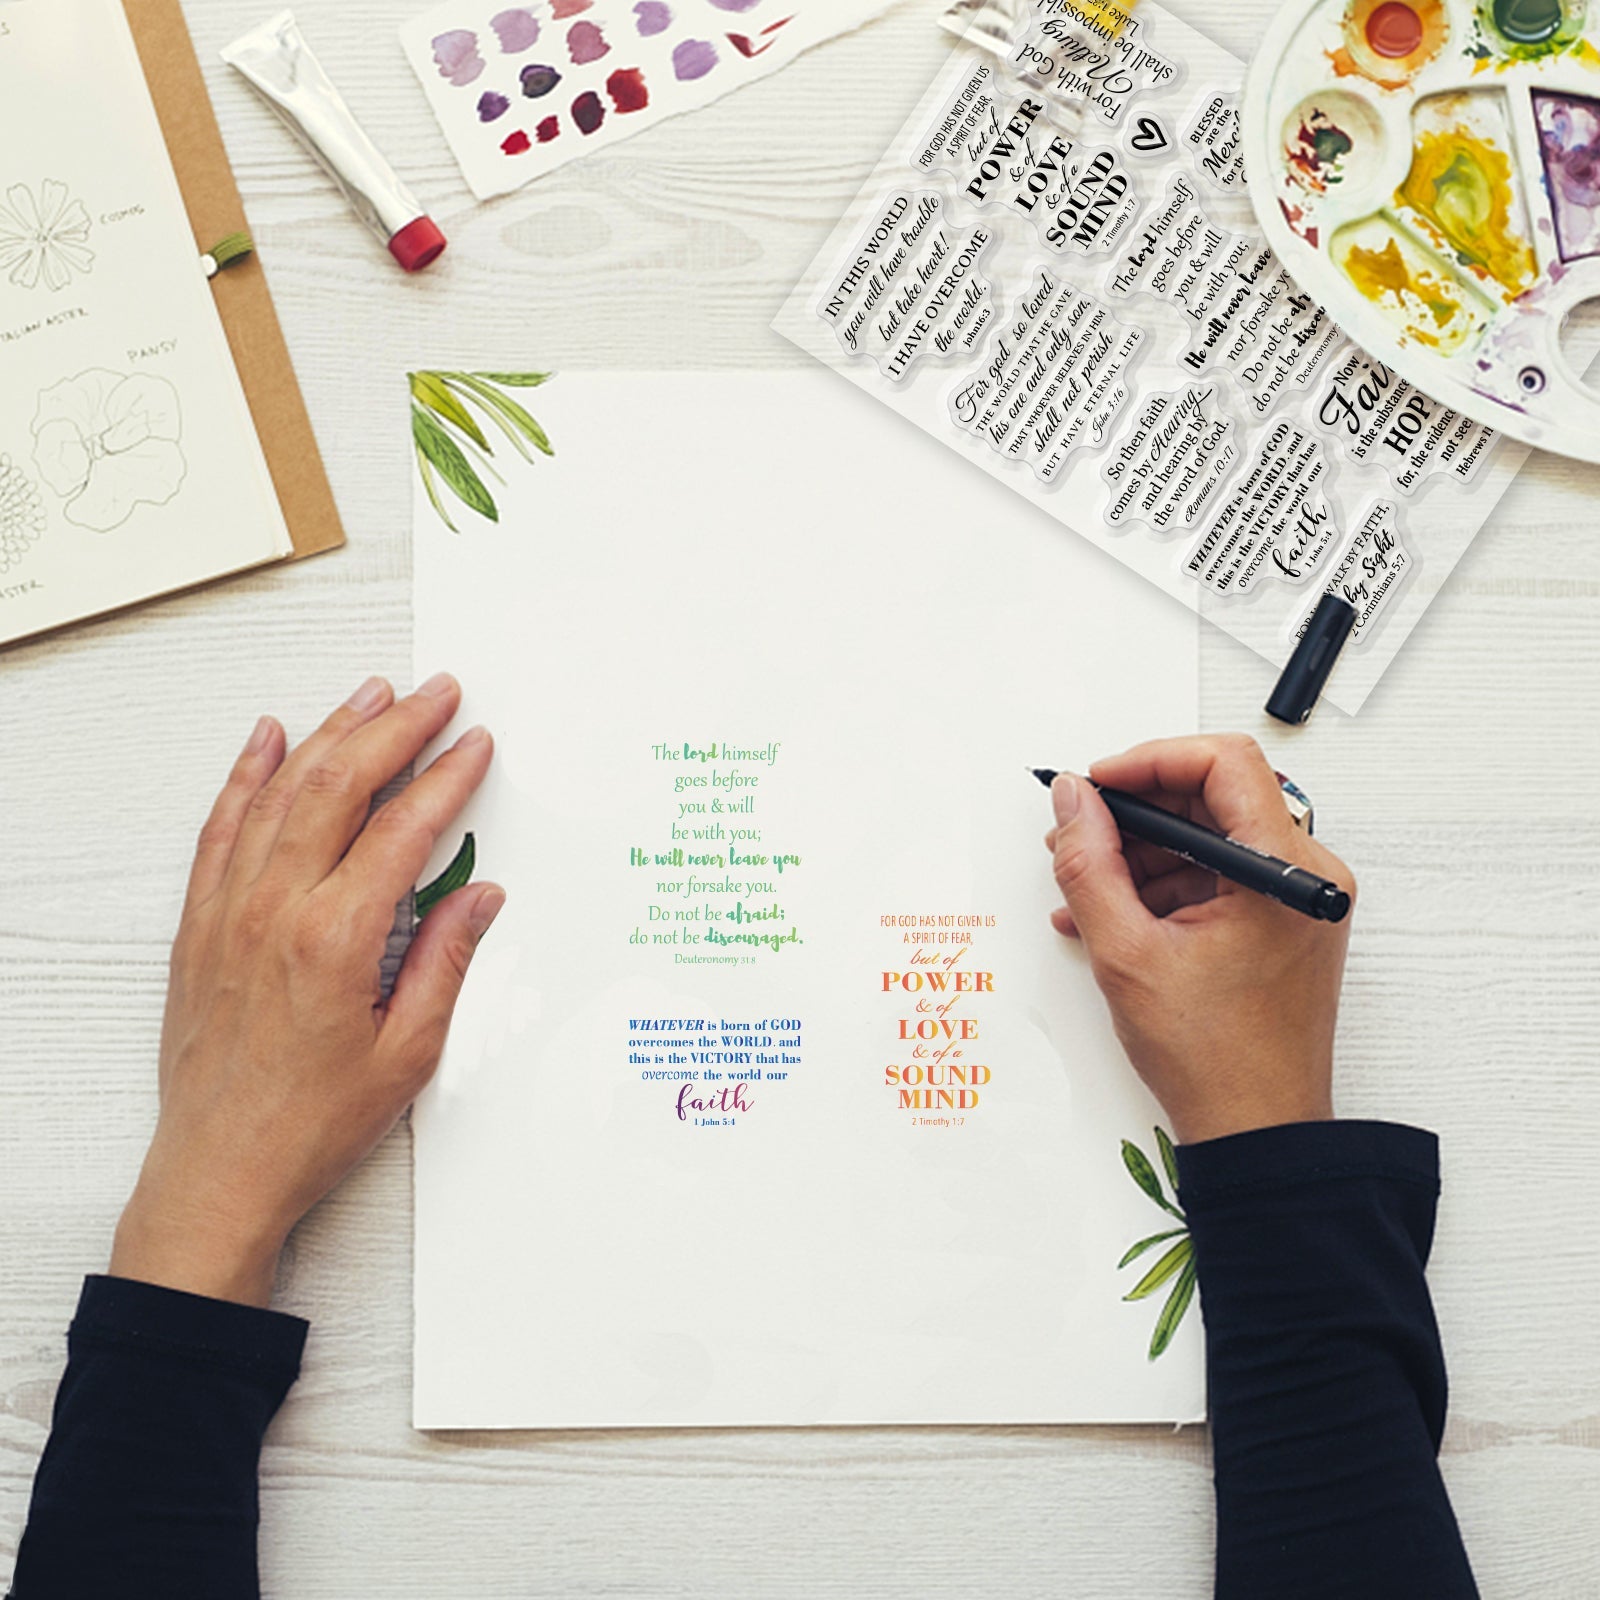 COSMOS
ASTER
PANSY
ASTER
shall be impossible
Luke 1:37
Nothing
For with God
FOR GOD HAS NOT GIVEN US
A SPIRIT OF FEAR,
but of
POWER
& of
LOVE
& of a
SOUND
MIND
2 Timothy 1:7
BLESSED
are the
for the
IN THIS WORLD
you will have trouble
but take heart!
I HAVE OVERCOME
the world.
john16:3
The lord himself
goes before
you & will
be with you;
He will never leave
nor forsake yo
Do not be
do not be
Deuteronomy
For god so loved
THE WORLD THAT HE GAVE
his one and only son,
THAT WHOEVER BELIEVES IN HIM
shall not perish
BUT HAVE ETERNAL LIFE
John 3:16
Now
is the substance
for, the evidence
not seen
Hebrews 11
So then faith
comes by Hearing,
and hearing by
the word of God.
Romans 10:17
WHATEVER is born of GOD
overcomes the WORLD. and
this is the VICTORY that has
overcome the world our
faith
1 John 5:4
WALK BY FAITH,
by Sight
2 Corinthians 5:7
The lord himself
goes before
you & will
be with you;
He will never leave you
nor forsake you.
Do not be afraid;
do not be discouraged.
Deuteronomy 31:8
WHATEVER is born of GOD
overcomes the WORLD. and
this is the VICTORY that has
overcome the world our
faith
1 John 5:4
FOR GOD HAS NOT GIVEN US
A SPIRIT OF FEAR,
but of
POWER
& of
LOVE
& of a
SOUND
MIND
2 Timothy 1:7